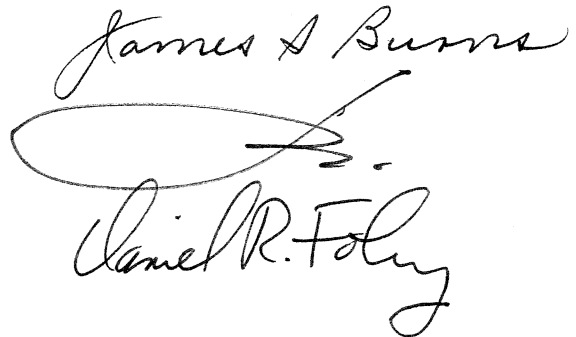 James S Burns
Daniel R. Foley